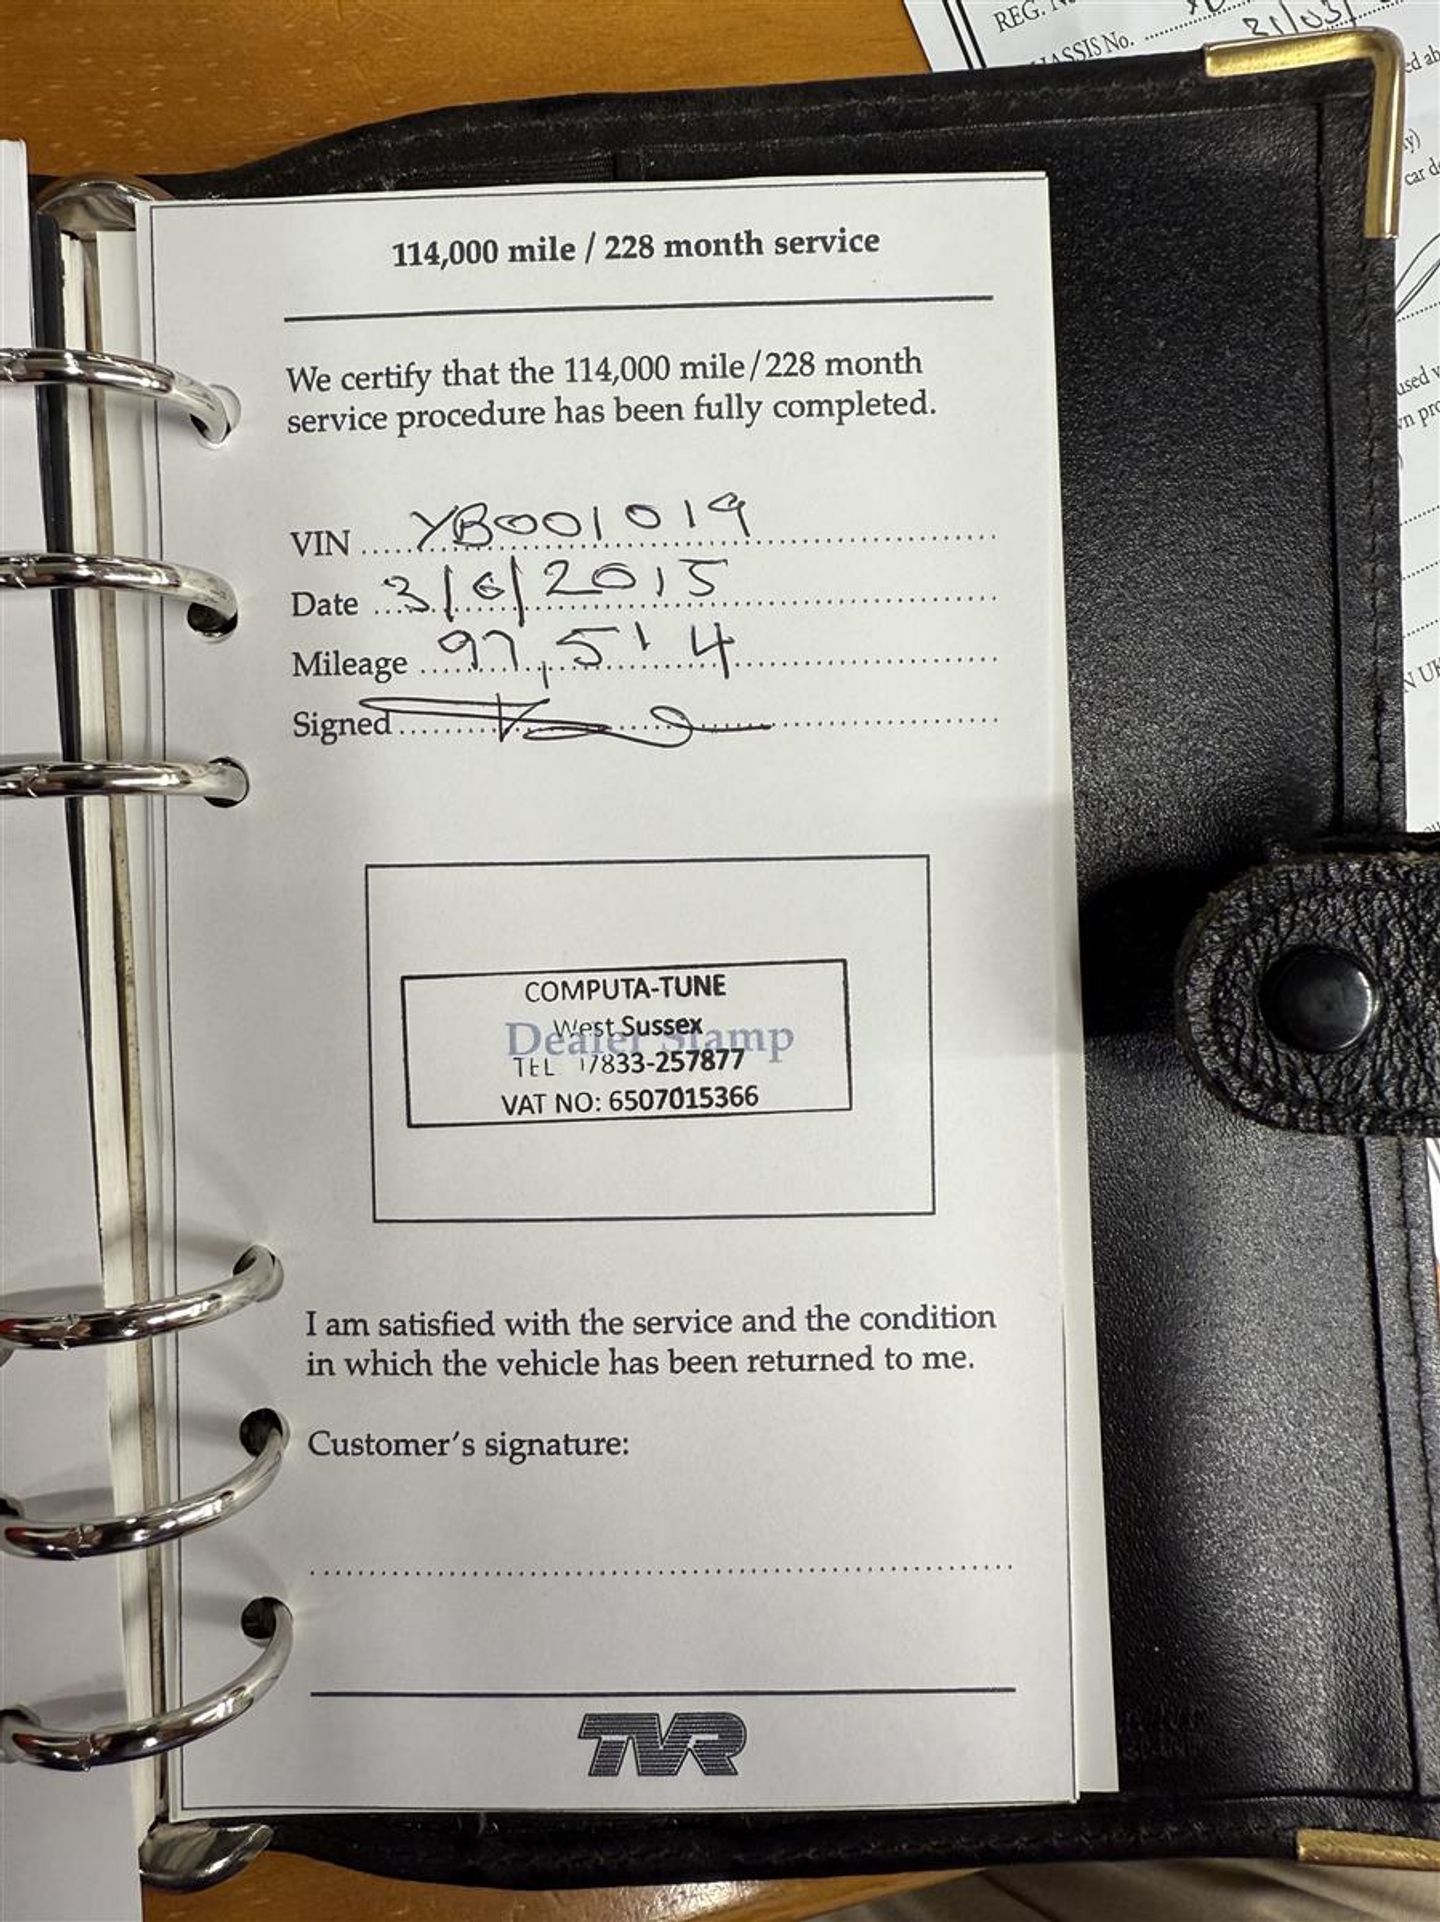 REG.
CHASSIS No.
31/03/
114,000 mile / 228 month service
We certify that the 114,000 mile/228 month
service procedure has been fully completed.
VIN YB001019
Date 3/6/2015
Mileage 97,514
Signed
COMPUTA-TUNE
West Sussex
Dealer Stamp
TEL 17833-257877
VAT NO: 6507015366
I am satisfied with the service and the condition
in which the vehicle has been returned to me.
Customer's signature:
TVR
car